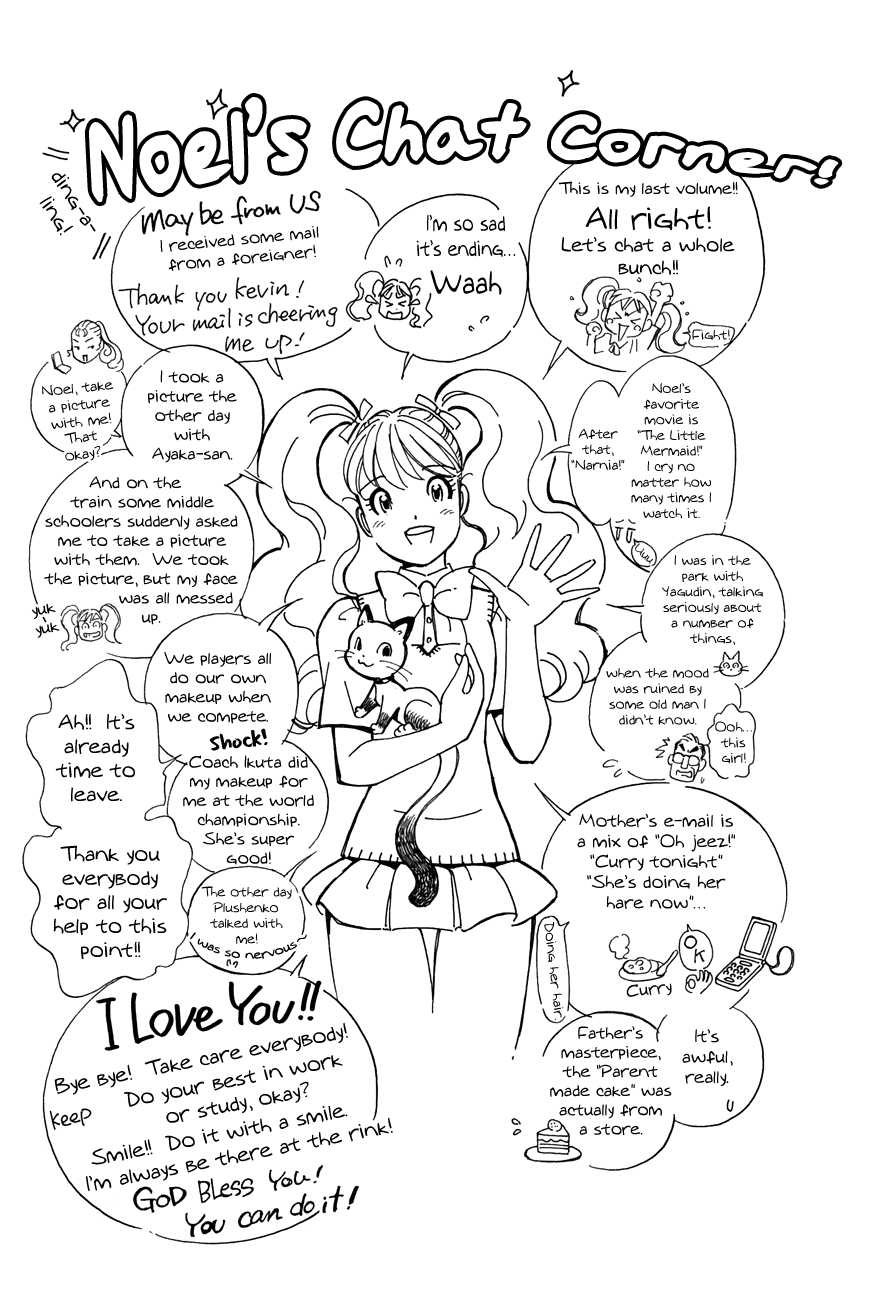 Noel's Chat Corner!
ding-a-
ling!
This is my last volume!!
All right!
Let's chat a whole
bunch!!
Fight!
I'm so sad
it's ending...
Waah
Maybe from US
I received some mail
from a foreigner!
Thank you Kevin!
Your mail is cheering
me up!
Noel's
favorite
movie is
"The Little
Mermaid!"
I cry no
matter how
many times I
watch it.
After
that,
"Narnia!"
Uuu
I took a
picture the
other day
with
Ayaka-san.
Noel, take
a picture
with me!
That
okay?
And on the
train some middle
schoolers suddenly asked
me to take a picture
with them. We took
the picture, but my face
was all messed
up.
yuk
yuk
I was in the
park with
Yagudin, talking
seriously about
a number of
things,
when the mood
was ruined by
some old man I
didn't know.
Ooh...
this
girl!
We players all
do our own
makeup when
we compete.
Shock!
Coach Ikuta did
my makeup for
me at the world
championship.
She's super
good!
The other day
Plushenko
talked with
me!
I was so nervous~
Mother's e-mail is
a mix of "Oh jeez!"
"Curry tonight"
"She's doing her
hare now"...
OK
Curry
Doing her hair.
It's
awful,
really.
Father's
masterpiece,
the "Parent
made cake" was
actually from
a store.
Ah!! It's
already
time to
leave.
Thank you
everybody
for all your
help to this
point!!
I Love You!!
Bye bye! Take care everybody!
Keep Do your best in work
or study, okay?
Smile!! Do it with a smile.
I'm always be there at the rink!
God Bless You!
You can do it!